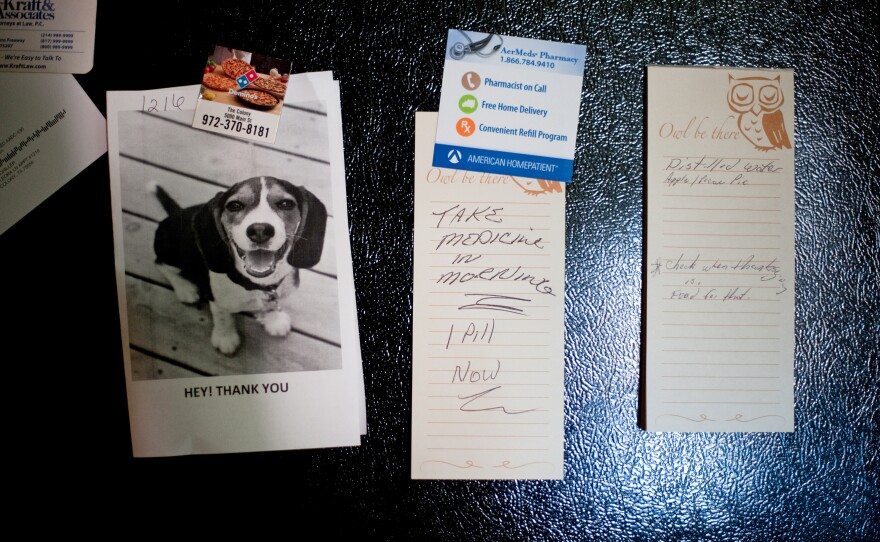 Kraft &
& Associates
Attorneys at Law, P.C.
(214) 999-9999
(817) 999-9999
(800) 989-9999
- We're Easy to Talk To
www.KraftLaw.com
1216
Domino's
The Colony
5000 Main St
972-370-8181
HEY! THANK YOU
AerMeds Pharmacy
1.866.784.9410
Pharmacist on Call
Free Home Delivery
Rx
Convenient Refill Program
AMERICAN HOMEPATIENT
Owl be there
TAKE
MEDICINE
IN
MORNING
1 Pill
NOW
Owl be there
Distilled water
Apple / Pecan Pie
* Check when
in
Food for that